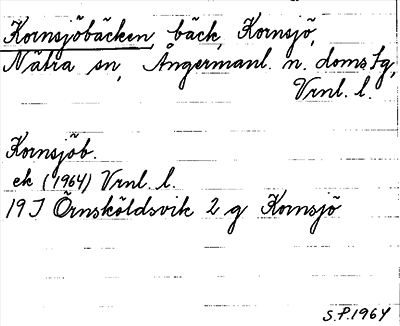 Kornsjöbäcken, bäck, Kornsjö,
Nätra sn, Ångermanl. n. doms.tg,
Vrnl. l.
Kornsjöb.
ek (1964) Vrnl. l.
19 I Örnsköldsvik 2 g Kornsjö
S.P. 1964